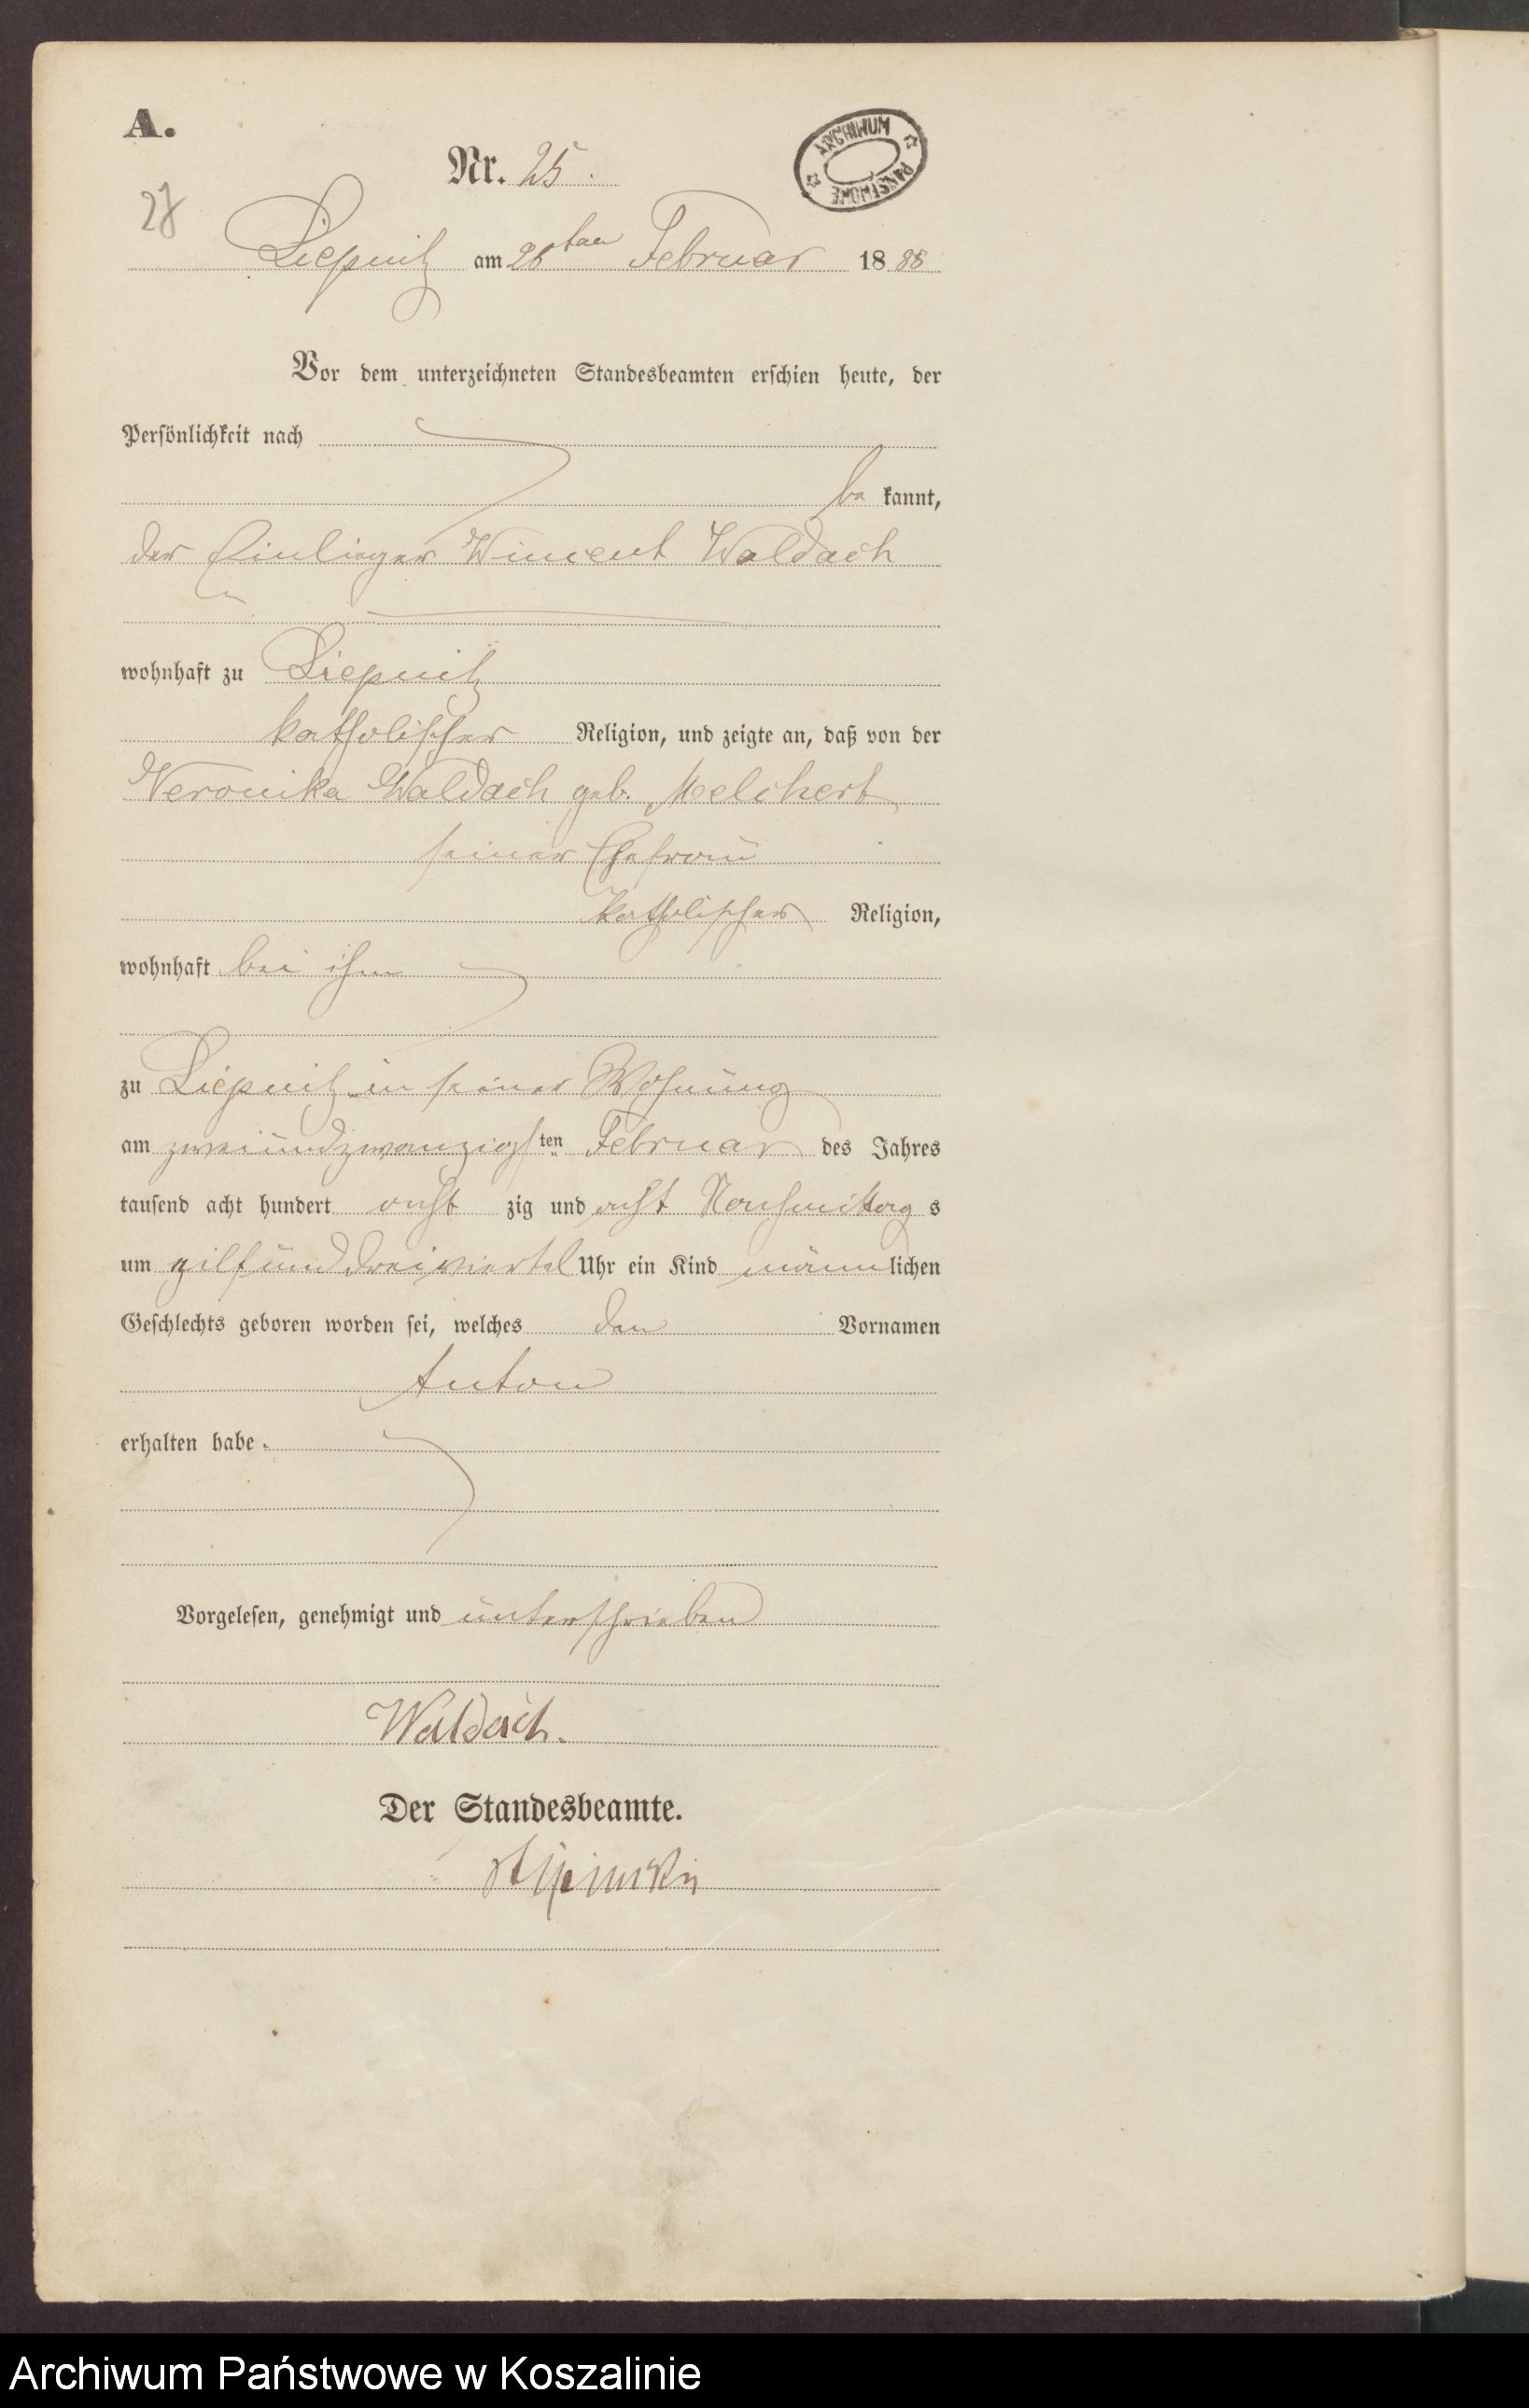 A.
Nr. 25.
ARCHIWUM PAŃSTWOWE
28
Liepnitz am 26ten Februar 1888
Vor dem unterzeichneten Standesbeamten erschien heute, der
Persönlichkeit nach
be kannt,
der Einlieger Wincent Waldach
wohnhaft zu Liepnitz
katholischer Religion, und zeigte an, daß von der
Veronika Waldach geb. Melchert
seiner Ehefrau
katholischer Religion,
wohnhaft bei ihm
zu Liepnitz in seiner Wohnung
am zweiundzwanzigsten Februar des Jahres
tausend acht hundert acht zig und acht Nachmittag s
um eilf und dreiviertel Uhr ein Kind männlichen
Geschlechts geboren worden sei, welches den Vornamen
Anton
erhalten habe.
Vorgelesen, genehmigt und unterschrieben
Waldach.
Der Standesbeamte.
Archiwum Państwowe w Koszalinie